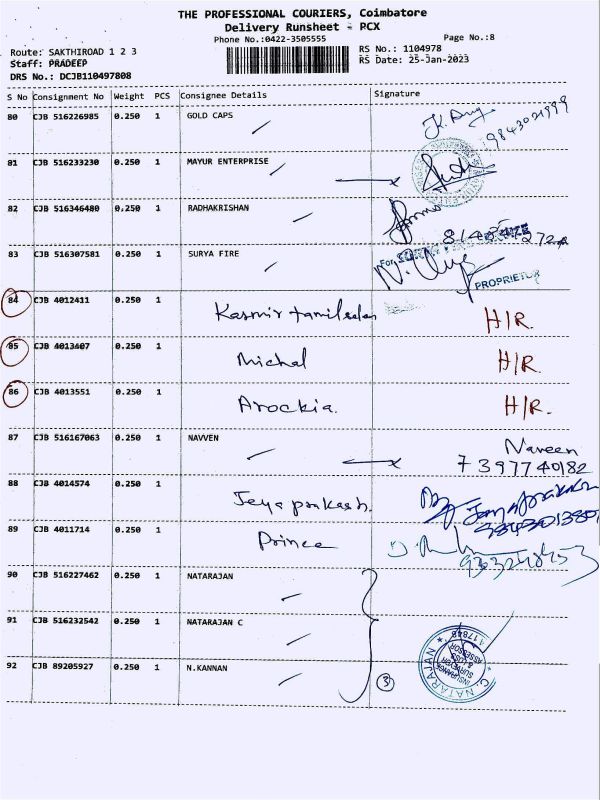 THE PROFESSIONAL COURIERS, Coimbatore
Delivery Runsheet - PCX
Phone No.:0422-3505555 Page No.:8
Route: SAKTHIROAD 1 2 3 RS No.: 1104978
Staff: PRADEEP RS Date: 25-Jan-2023
DRS No.: DCJB110497808
S No Consignment No Weight PCS Consignee Details Signature
80 CJB 516226985 0.250 1 GOLD CAPS 9843021999
81 CJB 516233230 0.250 1 MAYUR ENTERPRISE
82 CJB 516346480 0.250 1 RADHAKRISHAN
83 CJB 516307581 0.250 1 SURYA FIRE For
PROPRIETOR
84 CJB 4012411 0.250 1 Kasmir tamilselan H/R.
85 CJB 4013407 0.250 1 Michal H/R.
86 CJB 4013551 0.250 1 Arockia. H/R.
87 CJB 516167063 0.250 1 NAVVEN Naveen
7397740182
88 CJB 4014574 0.250 1 Jeya prakash. Jeyaprakash
89 CJB 4011714 0.250 1 Prince
90 CJB 516227462 0.250 1 NATARAJAN
91 CJB 516232542 0.250 1 NATARAJAN C
92 CJB 89205927 0.250 1 N.KANNAN 3
C. NATARAJAN
INSURANCE
SURVEYOR
& LOSS
ASSESSOR